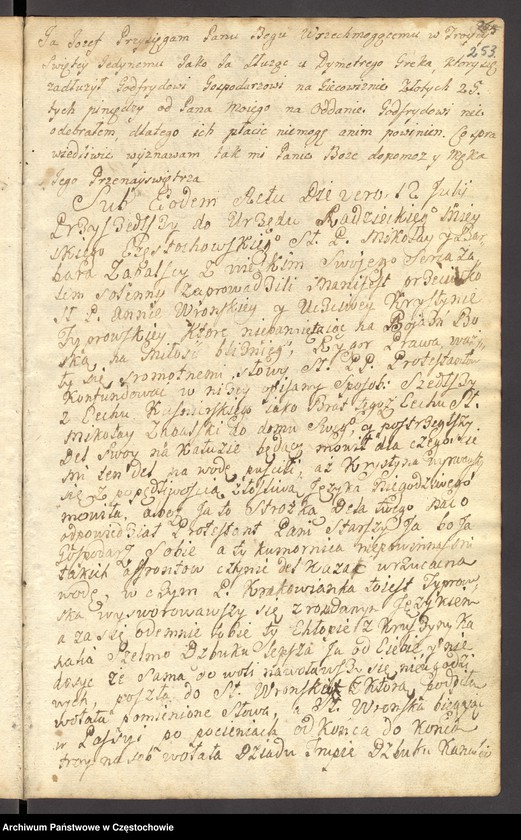 253
Ja Jozef Przysięgam Panu Bogu Wszechmogącemu w Troycy
Swiętey Jedynemu Jako Ja Służąc u Dymetrego Greka ktory się
zadłużył Godfrydowi Gospodarzowi na Złotych 25.
tych pinędzy od Pana Moiego na Oddanie Godfrydowi nie
odebrałem, dlatego ich płacić niemogę anim powinien. Co spra
wiedliwie wyznawam tak mi Panie Boze dopomoz y Męka
Jego Przenayswiętsza
Sub Eodem Actu Die vero 12 Julij
Przyszedłszy do Urzędu Radzieckiego Miey
skiego Częstochowskiego Sł. P. Mikołay y Bar
bara Zabascy z wielkim swojego serca ża
lem solenny zaprowadzili Manifest przeciwko
Sł P. Annie Wronskiy y Uczciwey Krystynie
Typrowskiey Ktore niepamiętaiąc na Bojazń Bo
ską, na miłość bliźniego, Rygor Prawa, waży
ły się sromotnemi słowy Sł. PP. Protestantów
Konfundować w niżey opisany Sposob. Szedłszy
z Cechu Kusnierskiego jako Brat tegoz Cechu Sł.
Mikołay do domu swego y postrzegłszy
Del swoy na Kałuzie będący mowił dla czego scie
mi ten Del na wodę puscili, aż Krystyna
się z popędliwoscią złosliwa Języka Niegodziwego
mowiła, a bo Ja to Strozka Dela twego na co
odpowiedział Protestant Pani Starszy Ja bo Ja
Gospodarz Sobie a ty Kumornica niepowinnas mi
takich affrontow czynic del Kazac wrzucac na
wodę, w czym P. Krakowianka to iest Typrow
ska wysworowawszy się z rozdanym Językiem
a za się odemnie tobie ty Chłopie z Kruszyny Ka
nalia Szelmo Dzbuku lepsza Ja od Ciebie y nie
dosyc ze sama do woli nawoławszy się nieugodzi
wych, poszła do Sł. Wronskiey z ktorą
wołała pomienione Słowa, a Sł. Wronska biegaiąc
w Pasyi po pocieniach od Konca do Konca
trzy na sob wołała Dziadu Trupie Dzbuku
Archiwum Państwowe w Częstochowie